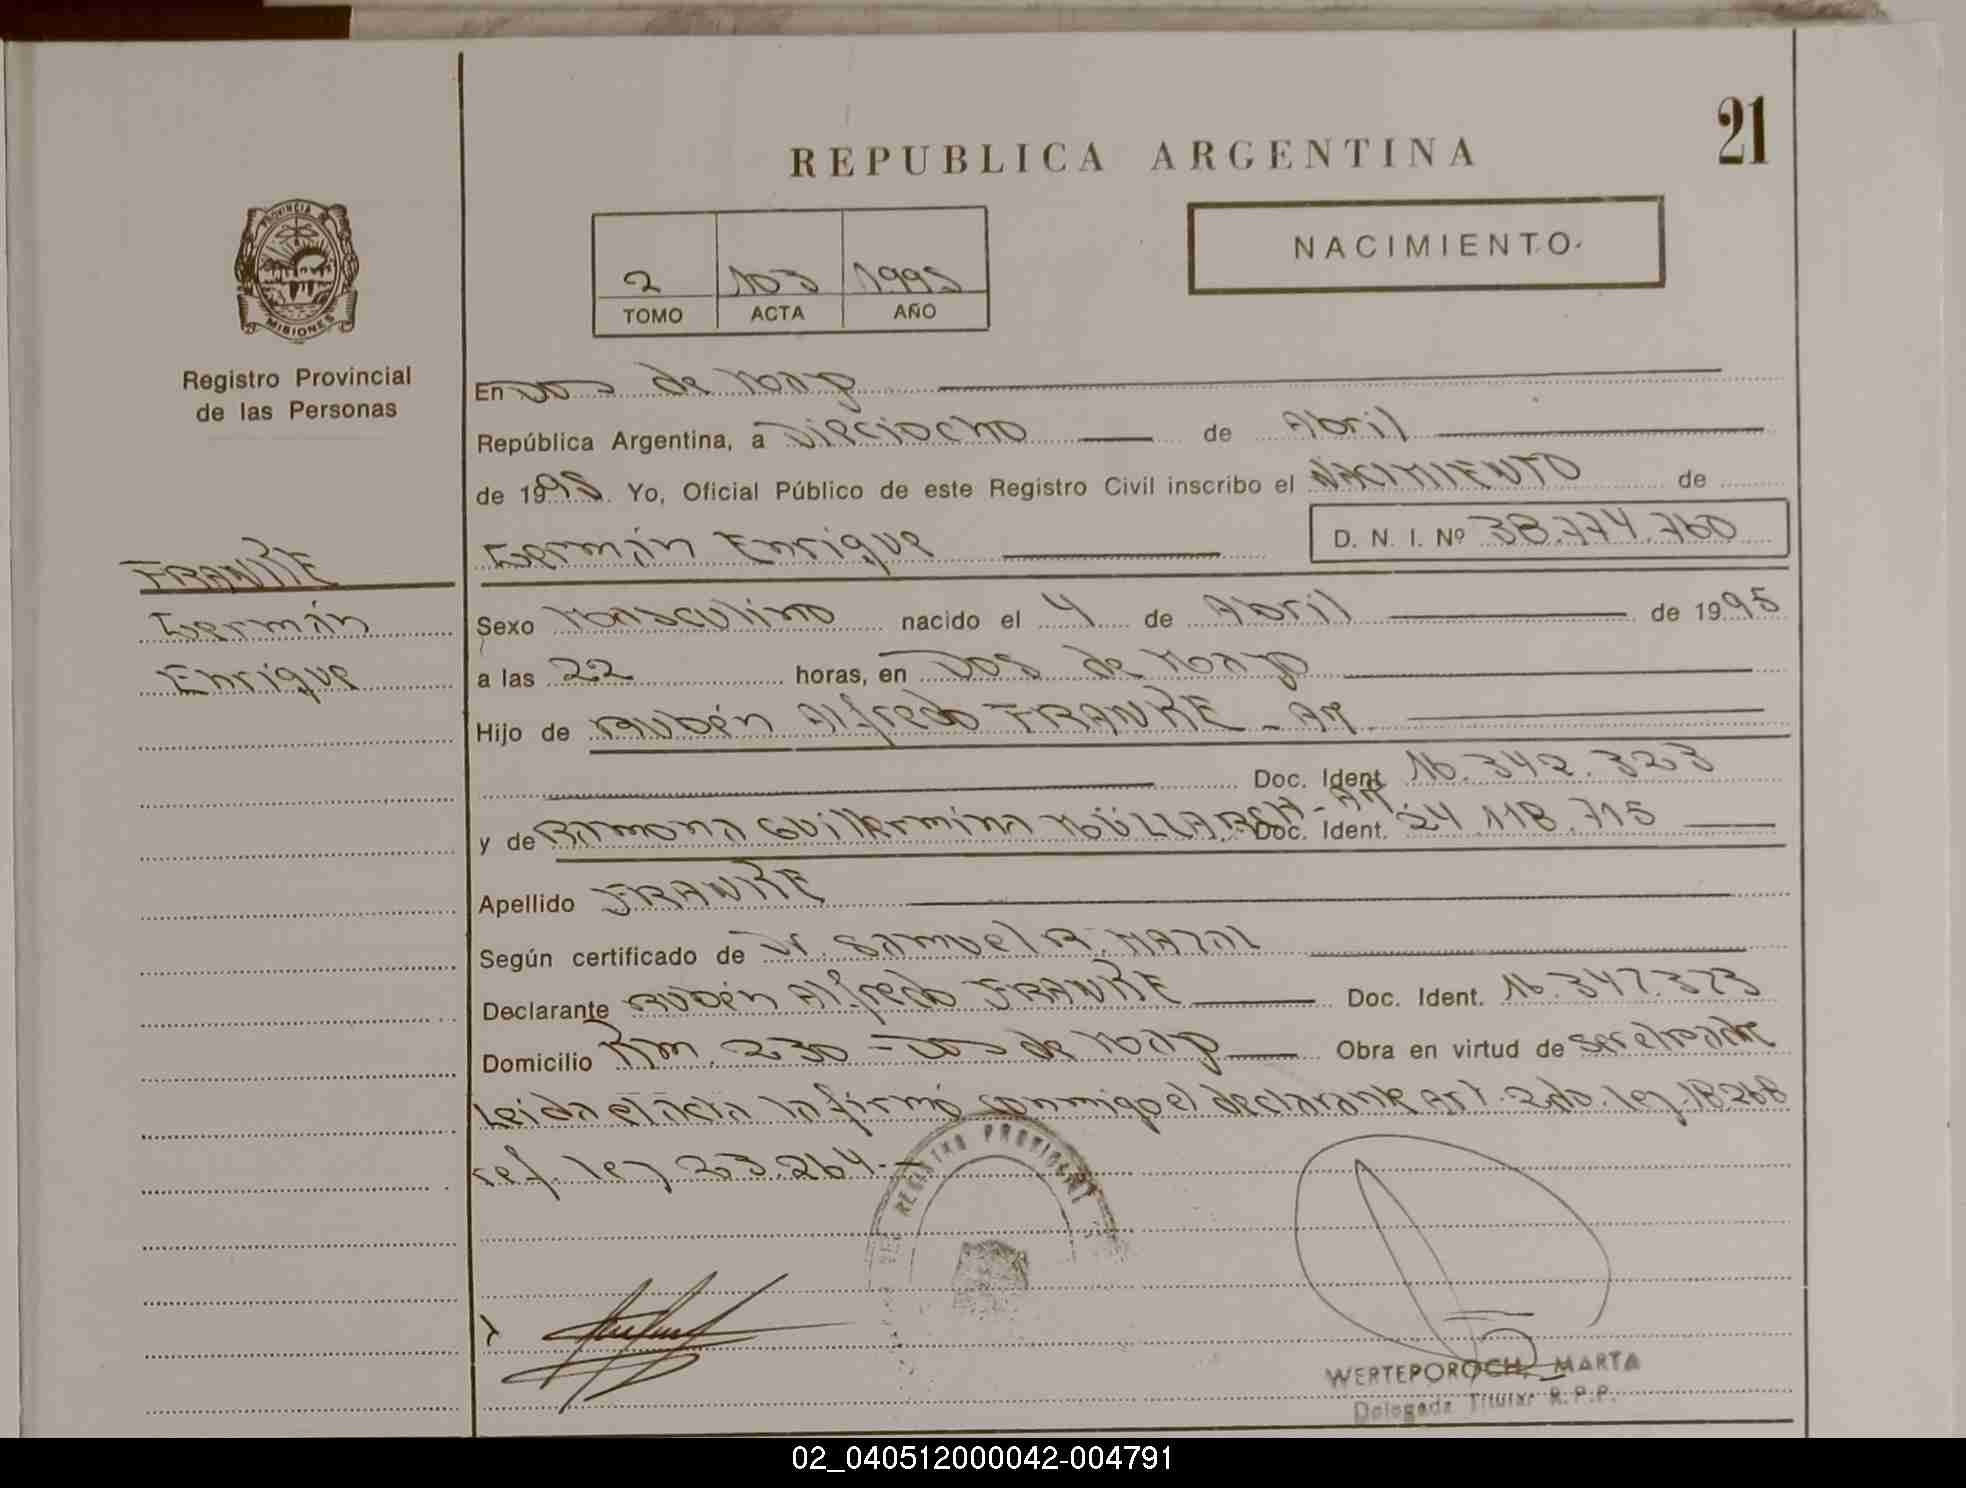 21
REPUBLICA ARGENTINA
NACIMIENTO
2 103 1995
TOMO ACTA AÑO
PROVINCIA DE
MISIONES
Registro Provincial
de las Personas
En Dos de Mayo
República Argentina, a Dieciocho de Abril
de 1995. Yo, Oficial Público de este Registro Civil inscribo el NACIMIENTO de
Germán Enrique D. N. I. Nº 38.774.760
FRANKE
Germán
Enrique
Sexo Masculino nacido el 4 de Abril de 1995
a las 22 horas, en Dos de Mayo
Hijo de Rubén Alfredo FRANKE - AR
Doc. Ident. 16.342.323
y de Ramona Guillermina - AR Doc. Ident. 24.118.715
Apellido FRANKE
Según certificado de Dr. Samuel R. MAZAL
Declarante Rubén Alfredo FRANKE Doc. Ident. 16.347.373
Domicilio Km. 230 - Dos de Mayo Obra en virtud de ser el padre
Leida el acta la firmó conmigo el declarante Art. 2do. ley 18.268
ref. ley 23.264.-
REGISTRO PROVINCIAL
WERTEPOROCH, MARTA
Delegada Titular R.P.P.
02_040512000042-004791